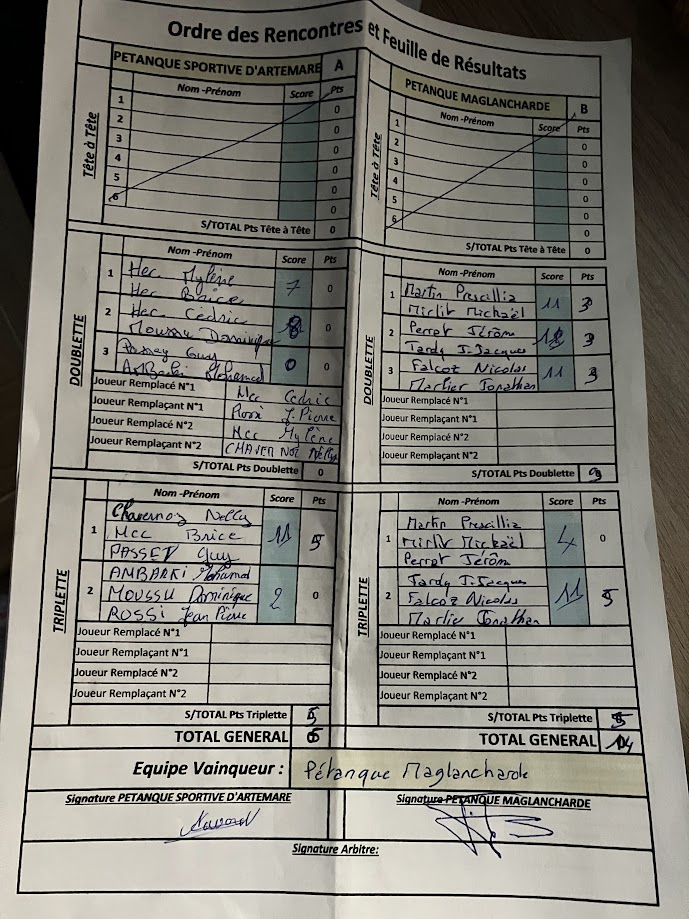 Ordre des Rencontres et Feuille de Résultats
PETANQUE SPORTIVE D'ARTEMARE A
Tête à Tête
Nom -Prénom Score Pts
1 0
2 0
3 0
4 0
5 0
6 0
S/TOTAL Pts Tête à Tête 0
PETANQUE MAGLANCHARDE B
Tête à Tête
Nom -Prénom Score Pts
1 0
2 0
3 0
4 0
5 0
6 0
S/TOTAL Pts Tête à Tête 0
DOUBLETTE
Nom -Prénom Score Pts
1 Hec Mylène 7 0
Hec Brice
2 Hec Cédric 8 0
Moussu Dominique
3 Passey Guy 0 0
Ambarki Mohamed
Joueur Remplacé N°1 Mcc Cedric
Joueur Remplaçant N°1 Rossi J. Pierre
Joueur Remplacé N°2 Mcc Mylène
Joueur Remplaçant N°2 CHAVERNOZ Nelly
S/TOTAL Pts Doublette 0
DOUBLETTE
Nom -Prénom Score Pts
1 Martin Prescillia 11 3
Mirlit Mickaël
2 Perrot Jérôm 3
Tardy J-Jacques
3 Falcoz Nicolas 11 3
Martier Jonathan
Joueur Remplacé N°1
Joueur Remplaçant N°1
Joueur Remplacé N°2
Joueur Remplaçant N°2
S/TOTAL Pts Doublette 9
TRIPLETTE
Nom -Prénom Score Pts
1 Chavernoz Nelly 11 5
Mcc Brice
PASSEY Guy
2 AMBARKI Mohamed 2 0
MOUSSU Dominique
ROSSI Jean Pierre
Joueur Remplacé N°1
Joueur Remplaçant N°1
Joueur Remplacé N°2
Joueur Remplaçant N°2
S/TOTAL Pts Triplette 5
TOTAL GENERAL
TRIPLETTE
Nom -Prénom Score Pts
1 Martin Prescillia 4 0
Mirlit Mickaël
Perrot Jérôm
2 Tardy J.Jacques 11 5
Falcoz Nicolas
Martier Jonathan
Joueur Remplacé N°1
Joueur Remplaçant N°1
Joueur Remplacé N°2
Joueur Remplaçant N°2
S/TOTAL Pts Triplette 5
TOTAL GENERAL 14
Equipe Vainqueur : Pétanque Maglancharde
Signature PETANQUE SPORTIVE D'ARTEMARE
Signature PETANQUE MAGLANCHARDE
Signature Arbitre: